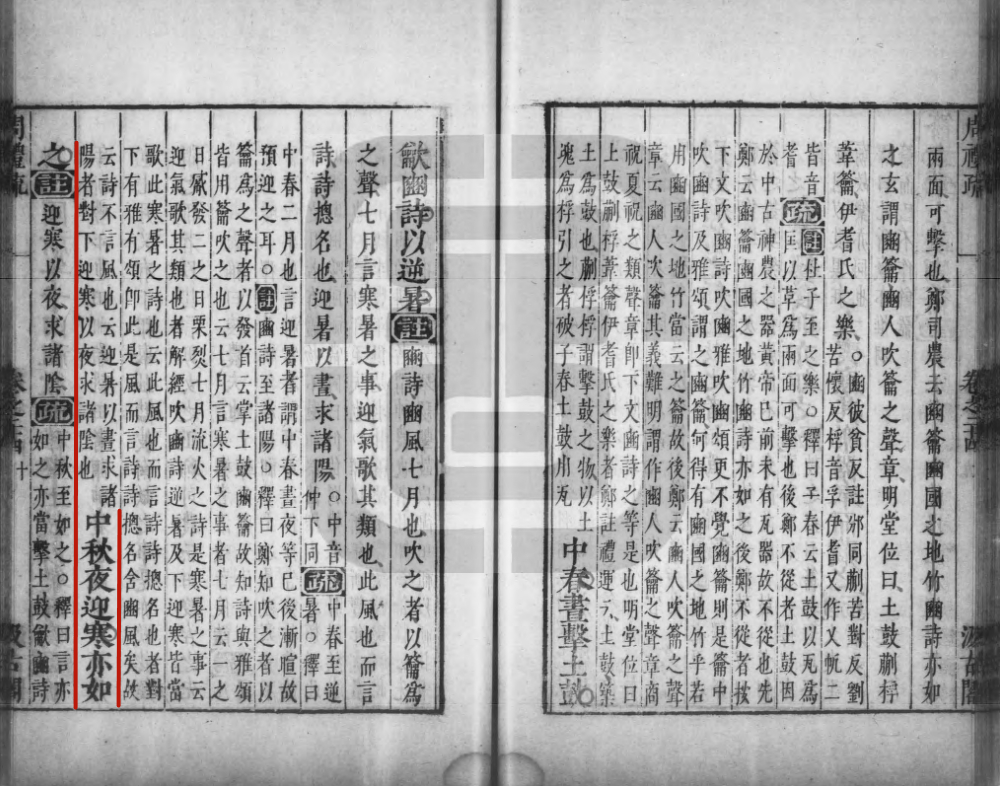 周禮疏 卷之二十四 汲古閣
兩面可擊也鄭司農云豳籥豳國之地竹豳詩亦如
之玄謂豳籥豳人吹籥之聲章明堂位曰土鼓蒯桴
葦籥伊耆氏之樂○豳彼貧反註邠同蒯苦對反劉
苦懷反桴音孚伊耆又作又帆二
皆音疏註杜子至之樂○釋曰子春云土鼓以瓦爲
耆匡以革爲兩面可擊也後鄭不從者土鼓因
於中古神農之器黃帝已前未有瓦器故不從也先
鄭云豳籥豳國之地竹豳詩亦如之後鄭不從者按
下文吹豳詩吹豳雅吹豳頌更不覺豳籥則是籥中
吹豳詩及雅頌謂之豳籥何得有豳國之地竹乎若
用豳國之地竹當云之豳籥故後鄭云豳人吹籥之聲
章云豳人吹籥其義難明謂作豳人吹籥之聲章商
祝夏祝之類聲章卽下文豳詩之等是也明堂位曰
土鼓蒯桴葦籥伊耆氏之樂者鄭註禮運云土鼓築
土爲鼓也蒯桴桴謂擊鼓之物以土
塊爲桴引之者破子春土鼓用瓦
中春晝擊土鼓
龡豳詩以逆暑註豳詩豳風七月也吹之者以籥爲
之聲七月言寒暑之事迎氣歌其類也此風也而言
詩詩摠名也迎暑以晝求諸陽○中音疏中春至逆
仲下同暑○釋曰
中春二月也言迎暑者謂中春晝夜等已後漸暄故
預迎之耳○註豳詩至諸陽○釋曰鄭知吹之者以
籥爲之聲者以發首云掌土鼓豳籥故知詩與雅頌
皆用籥吹之也云七月言寒暑之事者七月云一之
日觱發二之日栗烈七月流火之詩是寒暑之事云
迎氣歌其類也者解經吹豳詩逆暑及下迎寒皆當
歌此寒暑之詩也云此風也而言詩詩摠名也者對
下有雅有頌卽此是風而言詩詩摠名含豳風矣故
云詩不言風也云迎暑以晝求諸
陽者對下迎寒以夜求諸陰也
中秋夜迎寒亦如
之註迎寒以夜求諸陰疏中秋至如之○釋曰言亦
如之亦當擊土鼓龡豳詩
周禮疏 卷之二十四 十 汲古閣